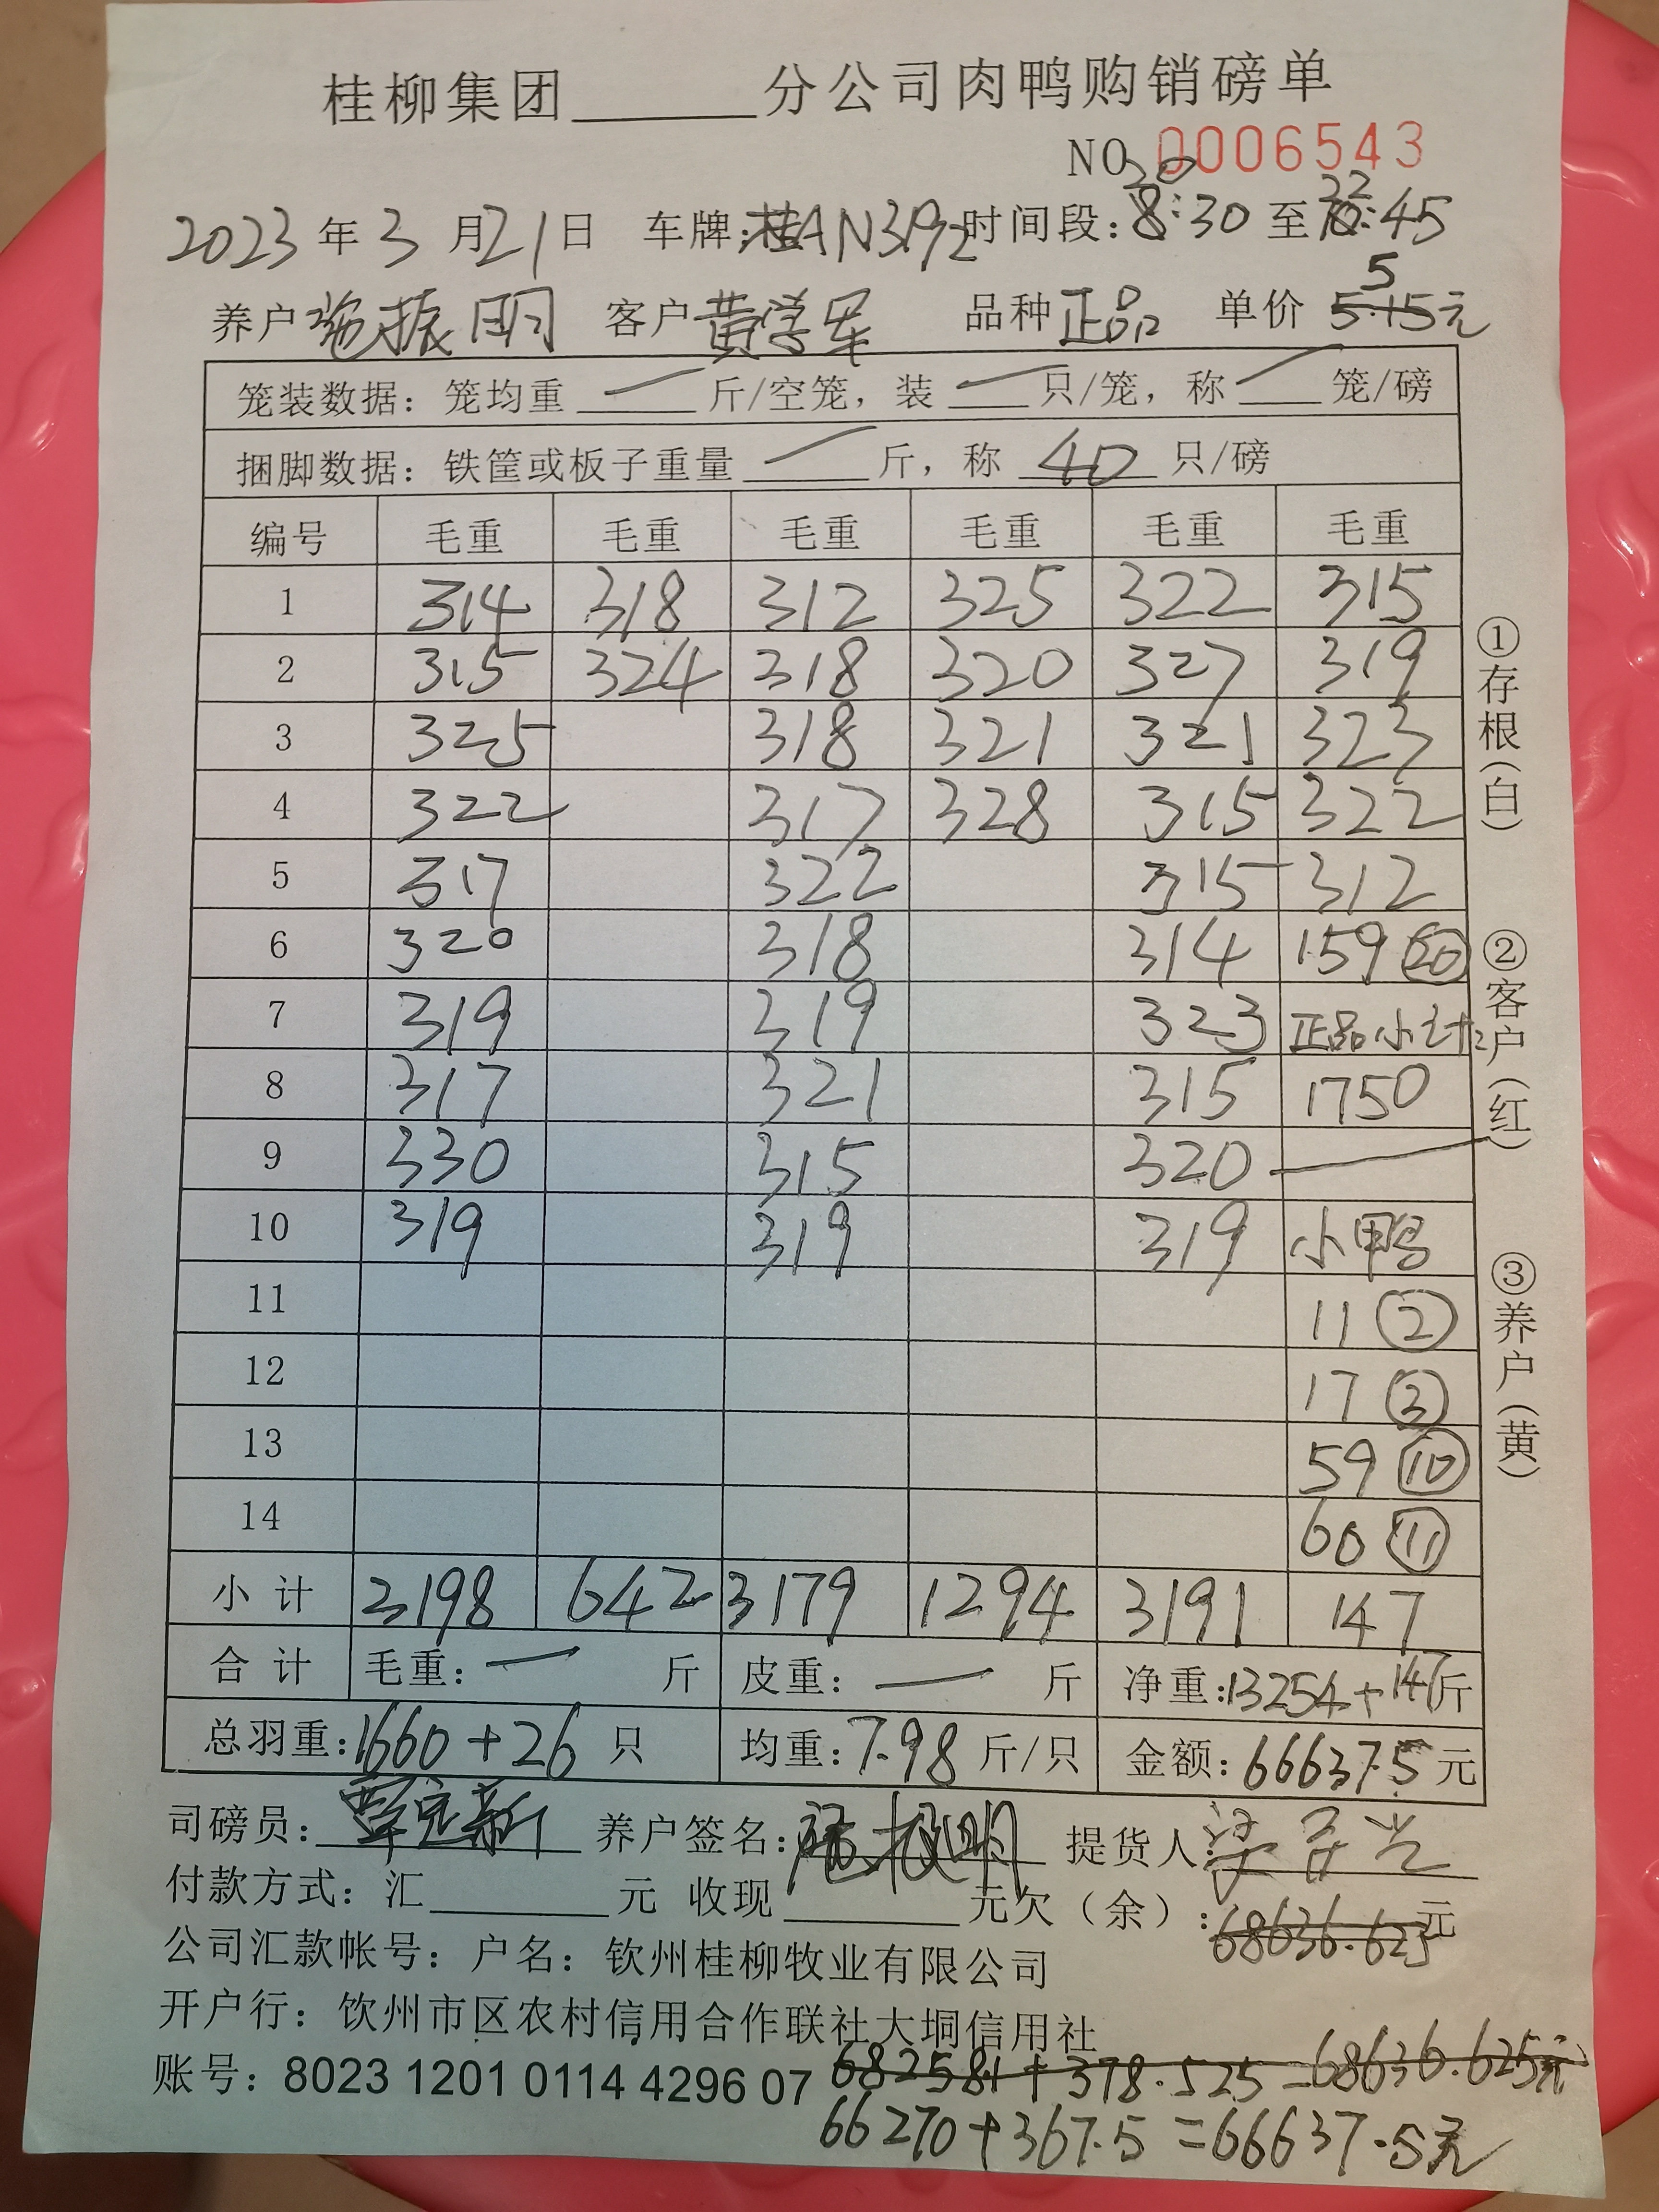 桂柳集团______分公司肉鸭购销磅单
NO 0006543
2023年3月21日 车牌:桂AN3192 时间段:20:30至22:45
养户 施振明 客户 黄学军 品种 正品 单价 5 5.15元
笼装数据:笼均重 — 斤/空笼,装 — 只/笼,称 — 笼/磅
捆脚数据:铁筐或板子重量 — 斤,称 40 只/磅
编号 毛重 毛重 毛重 毛重 毛重 毛重
1 314 318 312 325 322 315
2 315 324 318 320 327 319
3 325 318 321 321 323
4 322 317 328 315 322
5 317 322 315 312
6 320 318 314 159 ⑳
7 319 319 323 正品小计:
8 317 321 315 1750
9 330 315 320 —
10 319 319 319 小鸭
11 11 ②
12 17 ③
13 59 ⑩
14 60 ⑪
小计 3198 642 3179 1294 3191 147
合计 毛重:— 斤 皮重:— 斤 净重:13254+147斤
总羽重:1660+26 只 均重:7.98 斤/只 金额:66637.5元
司磅员: 养户签名:施振明 提货人:
付款方式:汇______元 收现______元欠(余):68636.625元
公司汇款帐号:户名:钦州桂柳牧业有限公司
开户行:钦州市区农村信用合作联社大垌信用社
账号:8023 1201 0114 4296 07 68258.1+378.525=68636.625元
66270+367.5=66637.5元
①存根(白)
②客户(红)
③养户(黄)